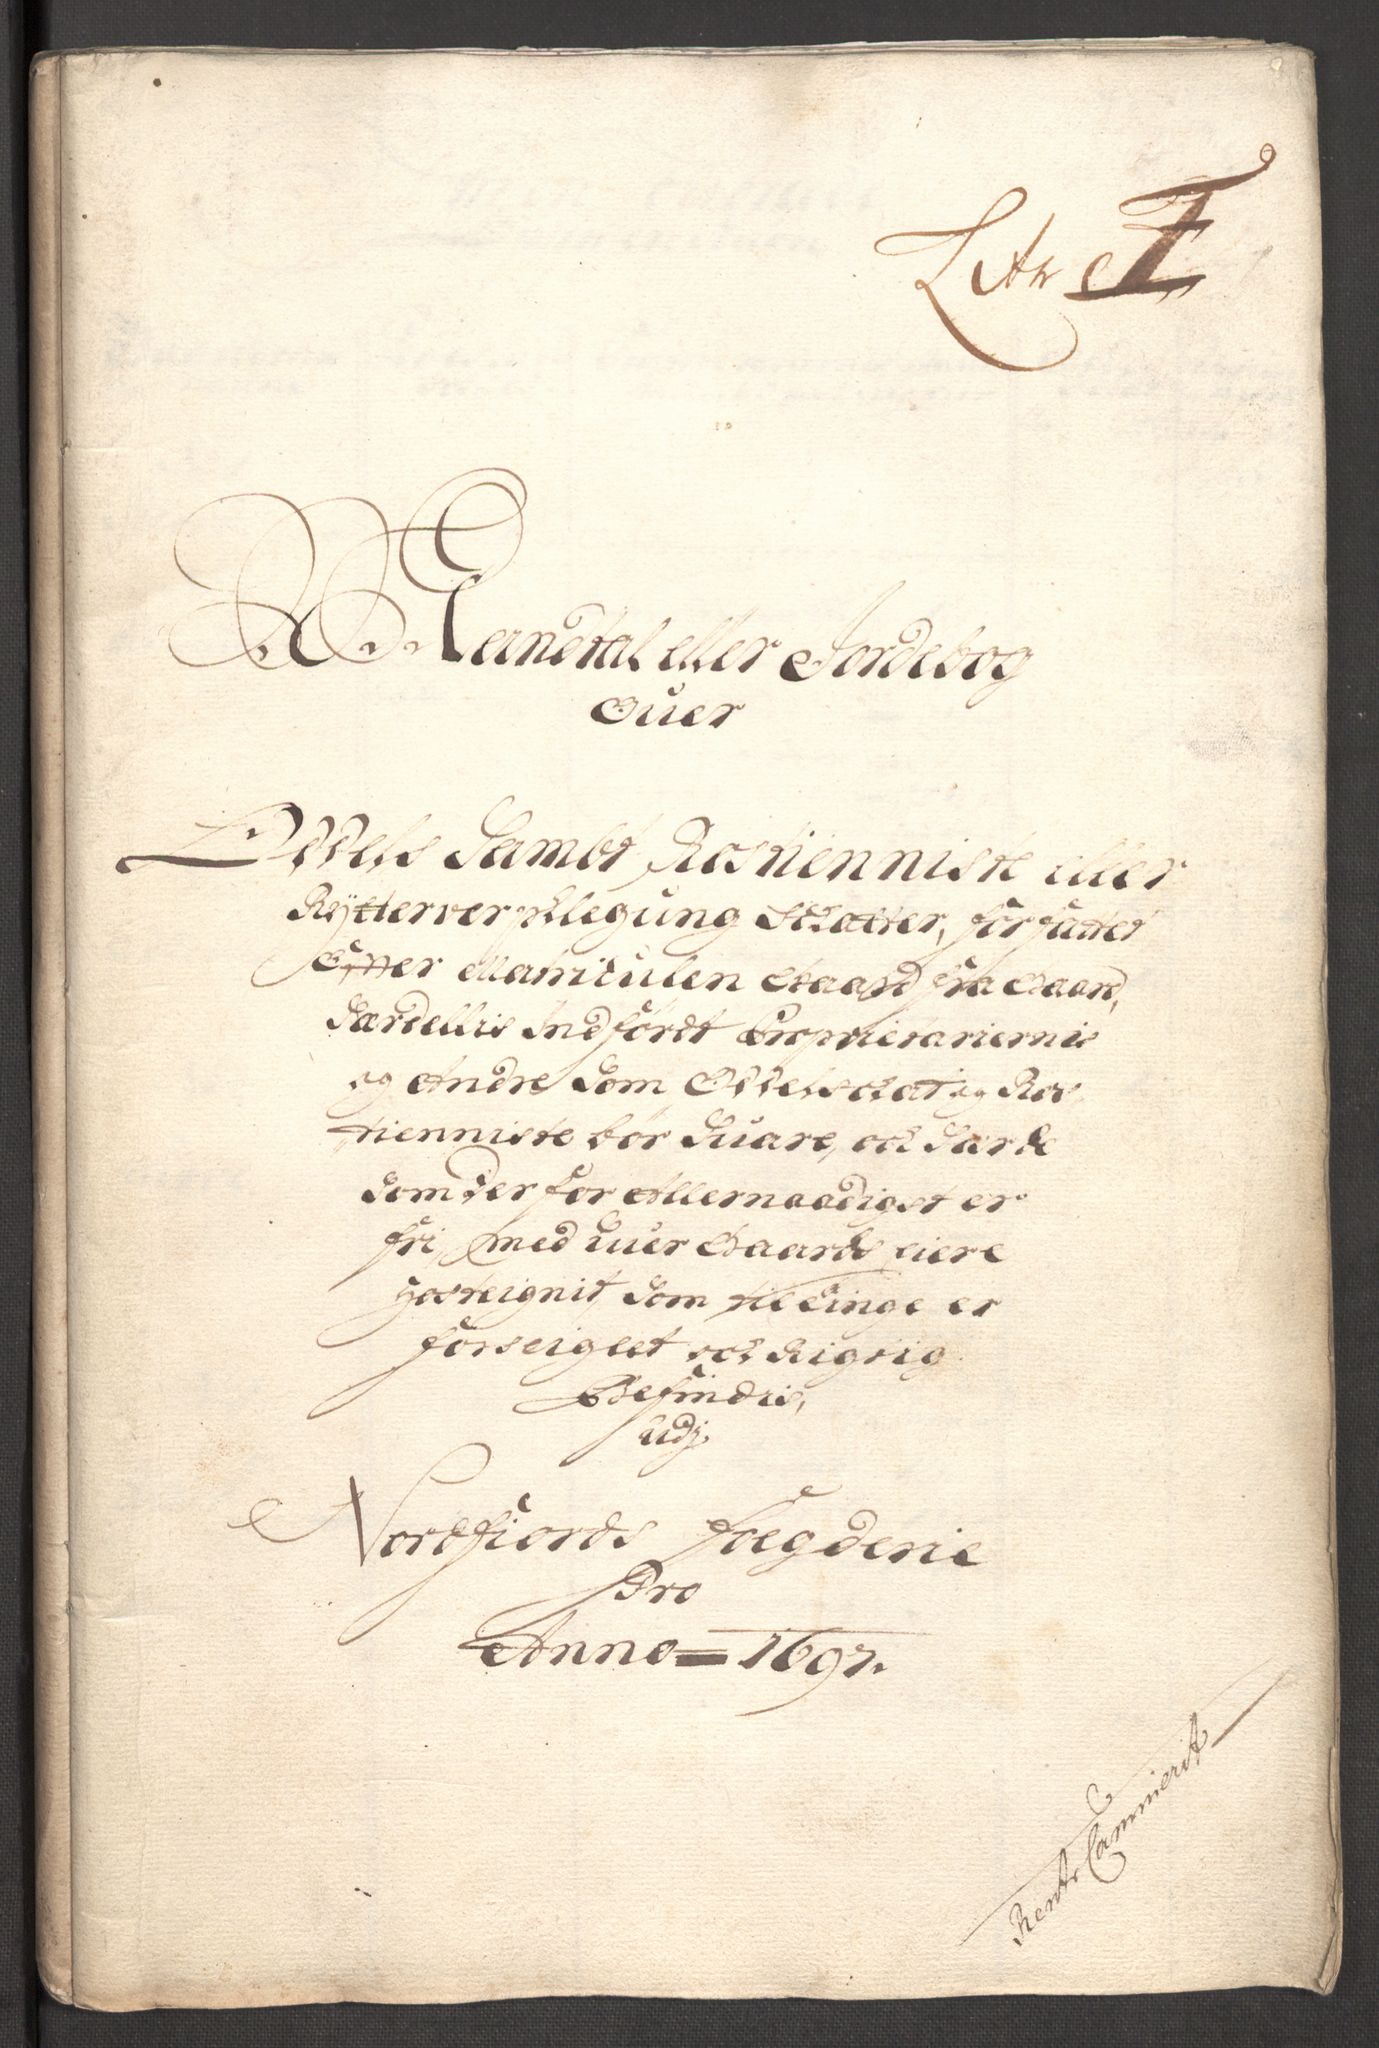 Litr F
Mandtal eller Jordebog
Ouer
Odels Sambt Rostienniste eller
Rÿtterverpflegung Skatter, forfattet
Effter Matriculen Gaard fra Gaard,
Særdellis Indfördt Proprietariernis
og Andre Som Odelschat og Ros
tienniste bör Suare, och Særde
Som der for Allernaadigst er
fri, med huer Gaards eiere
hosteignit Som til Tinge er
forseiglet och Rigtig
Befindis,
Udj
Nordfiords Foegderie
Pro
Anno 1697.
Rente Cammerit